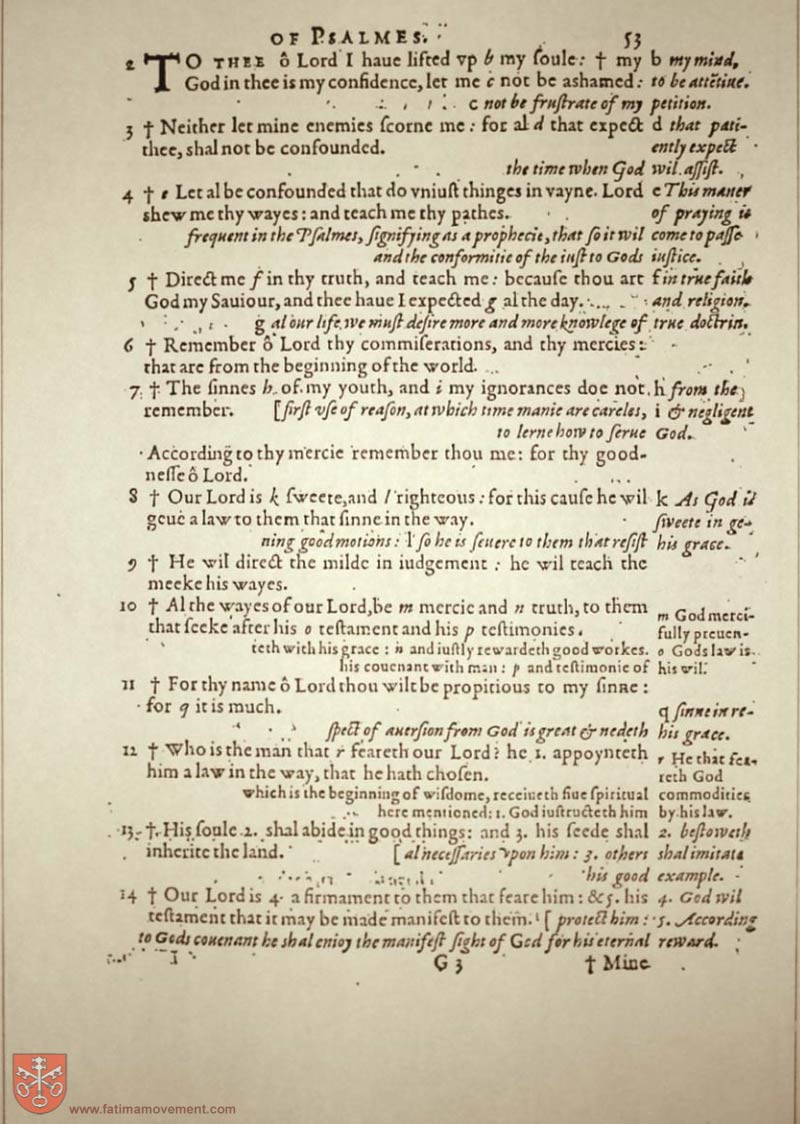 OF PSALMES. 53
2 TO THEE ô Lord I haue lifted vp b my ſoule: † my b my mind,
God in thee is my confidence, let me c not be aſhamed: to be attẽtiue.
c not be fruſtrate of my petition.
3 † Neither let mine enemies ſcorne me: for al d that expect d that pati-
thee, shal not be confounded. ently expect
the time when God wil aſſiſt.
4 † e Let al be confounded that do vniuſt thinges in vayne. Lord e This maner
shew me thy wayes: and teach me thy pathes. of praying is
frequent in the Pſalmes, ſignifying as a prophecie, that ſo it wil come to paſſe
and the conformitie of the iuſt to Gods iuſtice.
5 † Direct me f in thy truth, and teach me: becauſe thou art f in true faith
God my Sauiour, and thee haue I expected g al the day. and religion.
g al our life we muſt deſire more and more knowlege of true doctrin.
6 † Remember ô Lord thy commiſerations, and thy mercies:
that are from the beginning of the world.
7 † The ſinnes h of my youth, and i my ignorances doe not h from the
remember. [firſt vſe of reaſon, at which time manie are careles, i & negligent
to lerne how to ſerue God.
According to thy mercie remember thou me: for thy good-
neſſe ô Lord.
8 † Our Lord is k ſweete, and l righteous: for this cauſe he wil k As God is
geue a law to them that ſinne in the way. ſweete in ge-
ning good motions: l ſo he is ſeuere to them that reſiſt his grace.
9 † He wil direct the milde in iudgement: he wil teach the
meeke his wayes.
10 † Al the wayes of our Lord, be m mercie and n truth, to them m God merci-
that ſeeke after his o teſtament and his p teſtimonies. fully preuen-
teth with his grace: n and iuſtly rewardeth good workes. o Gods law is
his couenant with man: p and teſtimonie of his wil.
11 † For thy name ô Lord thou wilt be propitious to my ſinne:
for q it is much. q ſinne in re-
ſpect of auerſion from God is great & nedeth his grace.
12 † Who is the man that r feareth our Lord? he 1. appoynteth r He that fea-
him a law in the way, that he hath choſen. reth God
which is the beginning of wiſdome, receiueth fiue ſpiritual commodities
here mentioned: 1. God iuſtructeth him by his law.
13 † His ſoule 2. shal abide in good things: and 3. his ſeede shal 2. beſtoweth
inherite the land. [al neceſſaries vpon him: 3. others shal imitate
his good example.
14 † Our Lord is 4. a firmament to them that feare him: & 5. his 4. God wil
teſtament that it may be made manifeſt to them. [protect him: 5. According
to Gods couenant he shal enioy the manifeſt ſight of God for his eternal reward.
G 3 † Mine
www.fatimamovement.com